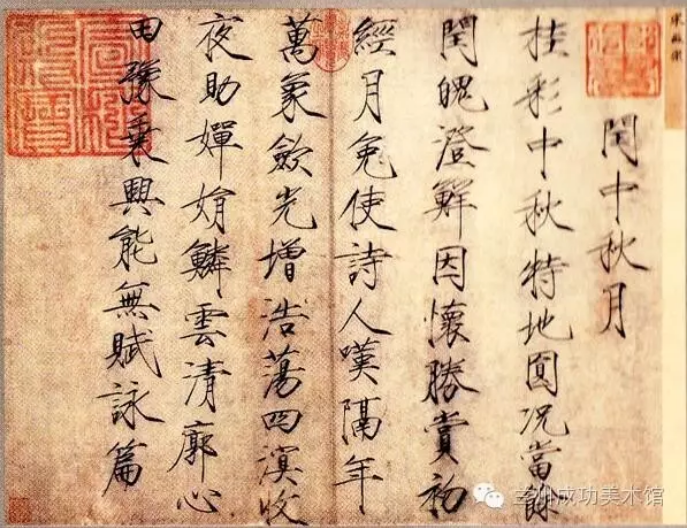 閏中秋月
桂彩中秋特地圓况當餘
閏魄澄鮮因懷勝賞初
經月免使詩人嘆隔年
萬象歛光增浩蕩四溟收
夜助嬋娟鱗雲清廓心
田豫乘興能無賦詠篇
兰州成功美术馆